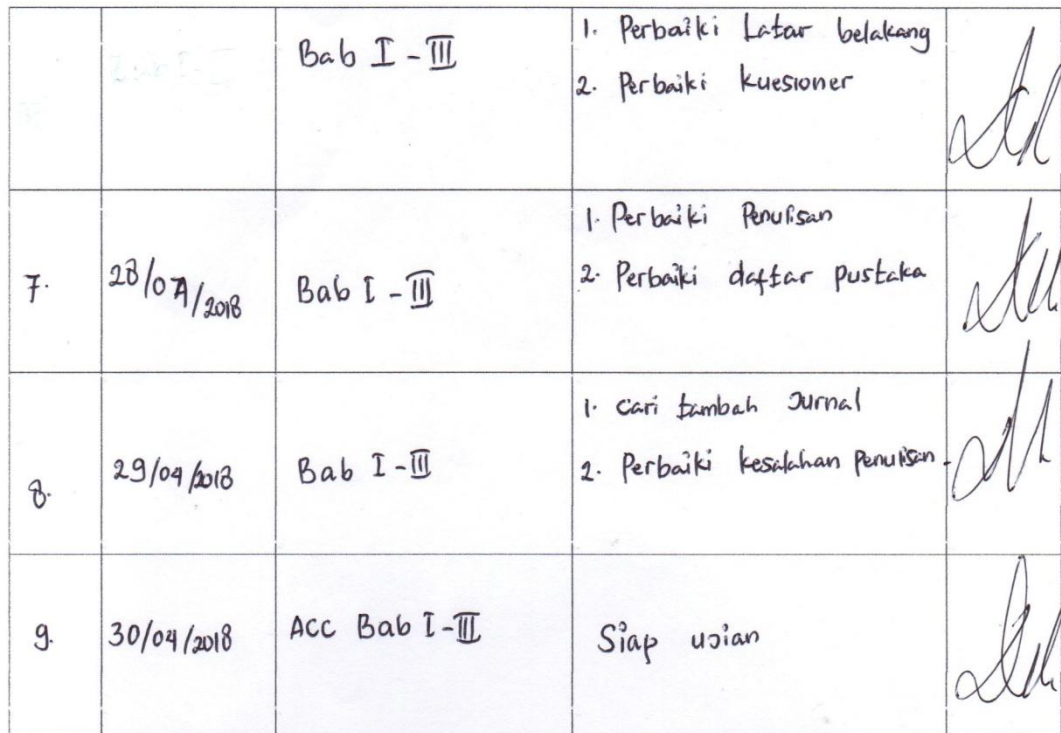 Bab I - III
1. Perbaiki Latar belakang
2. Perbaiki kuesioner
7.
28/04/2018
Bab I - III
1. Perbaiki Penulisan
2. Perbaiki daftar pustaka
8.
29/04/2018
Bab I - III
1. Cari tambah Jurnal
2. Perbaiki kesalahan Penulisan.
9.
30/04/2018
ACC Bab I - III
Siap ujian